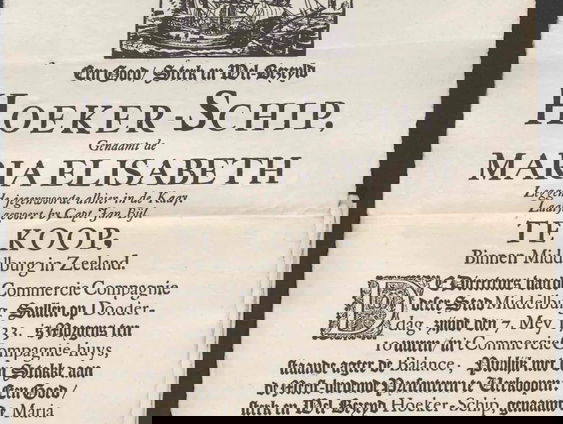 Een Goed / Sterk en Wel-Bezeyld
HOEKER-SCHIP,
Genaamt de
MARIA ELISABETH
Leggende jegenwoordig alhier in de Kaay
Laast gevoert by Capt. Jan Byl.
TE KOOP,
Binnen Middelburg in Zeeland.
DE Directeurs van de
Commercie Compagnie
deser Stad Middelburg, Sullen op Dooder-
dag, zijnde den 7. Mey 1733.
middag ten
uuren in't Commercie
Compagnie huys,
staande agter de Balance, Publijk met den Stokke aan
de Meest-biedende Presenteren te Verkoopen, Een Goed /
sterk en Wel Bezeyld Hoeker-Schip, genaamt
de Maria